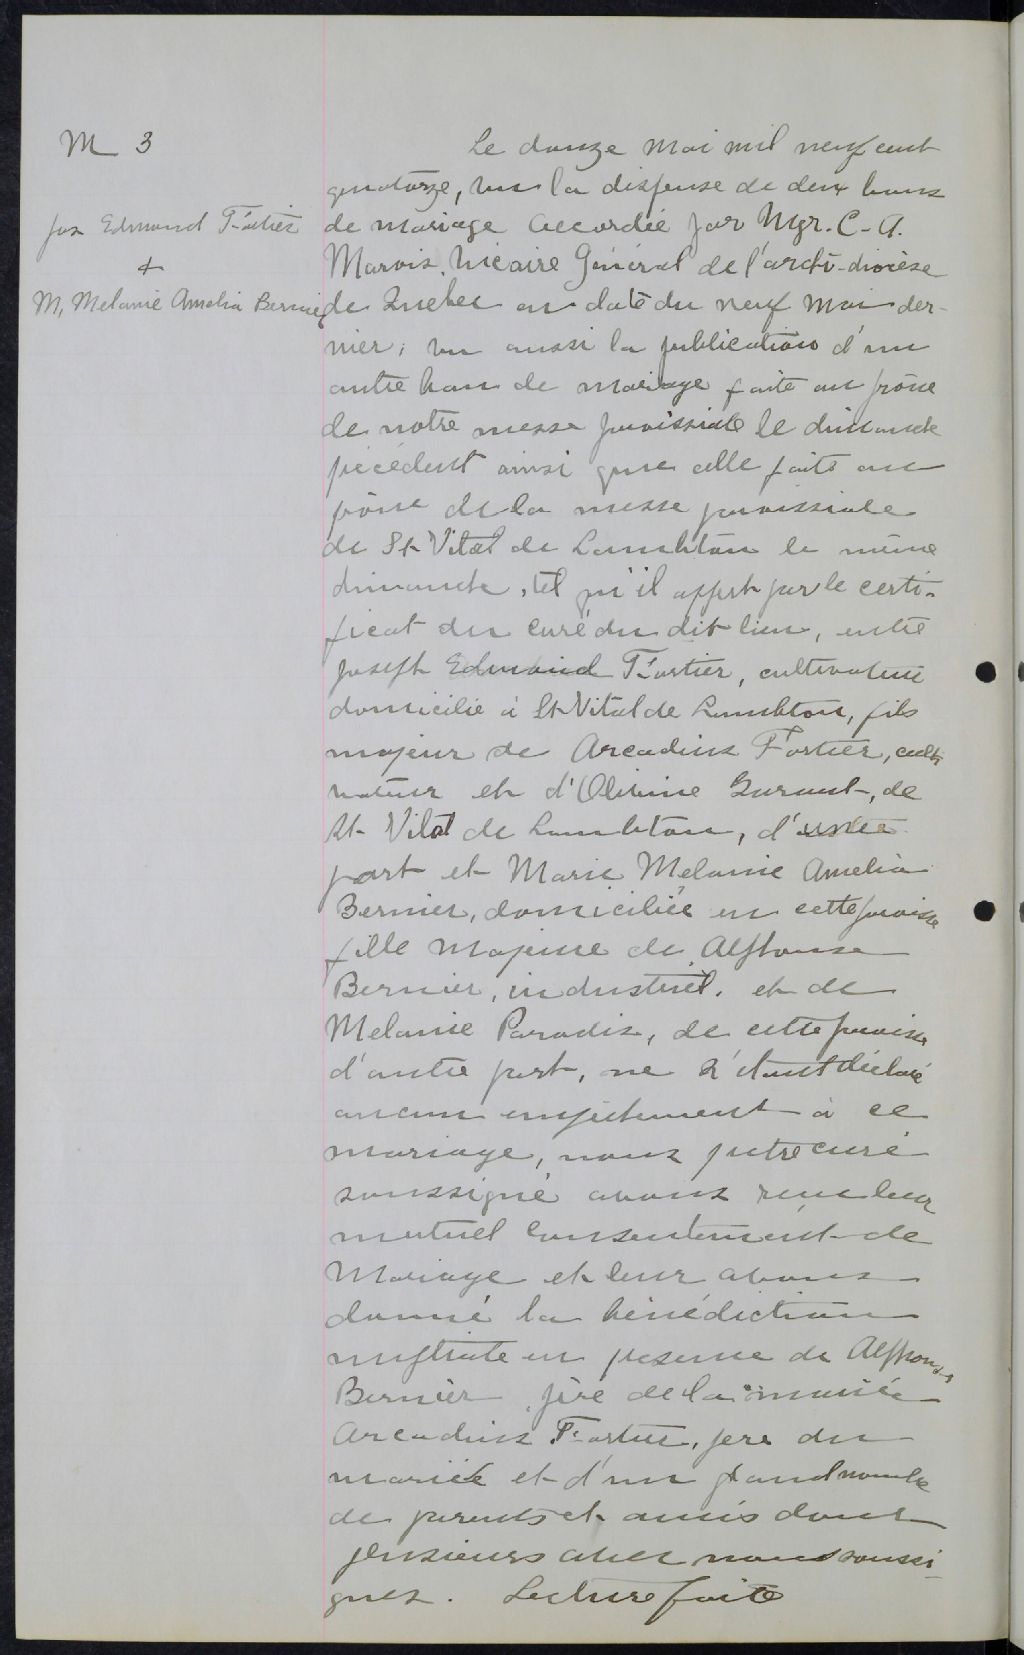 M 3
Jos Edmond Fortier
+
M, Melanie Amelia Bernier
Le douze mai mil neuf cent
quatorze, vu la dispense de deux bans
de mariage accordée par Mgr. C-A.
Marois, Vicaire Général de l'archi-diocèse
de Quebec en date du neuf mai der-
nier; vu aussi la publication d'un
autre ban de mariage faite au prône
de notre messe paroissiale le dimanche
précédent ainsi que celle faite au
prône de la messe paroissiale
de St-Vital de Lambton le même
dimanche, tel qu'il appert par le certi-
ficat du curé du dit lieu, entre
Joseph Edmond Fortier, cultivateur
domicilié à St-Vital de Lambton, fils
majeur de Arcadius Fortier, culti
vateur et d'Olivine Gurant, de
St-Vital de Lambton, d'une
part et Marie Melanie Amelia
Bernier, domiciliée en cette paroisse
fille majeure de Alphonse
Bernier, industriel, et de
Melanie Paradis, de cette paroisse
d'autre part, ne s'étant déclaré
aucun empêchement à ce
mariage, nous prêtre curé
soussigné avons reçu leur
mutuel consentement de
mariage et leur avons
donné la bénédiction
nuptiale en présence de Alphonse
Bernier, père de la mariée
Arcadius Fortier, père du
marié et d'un grand nombre
de parents et amis dont
plusieurs avec nous soussi-
gnés. Lecture faite